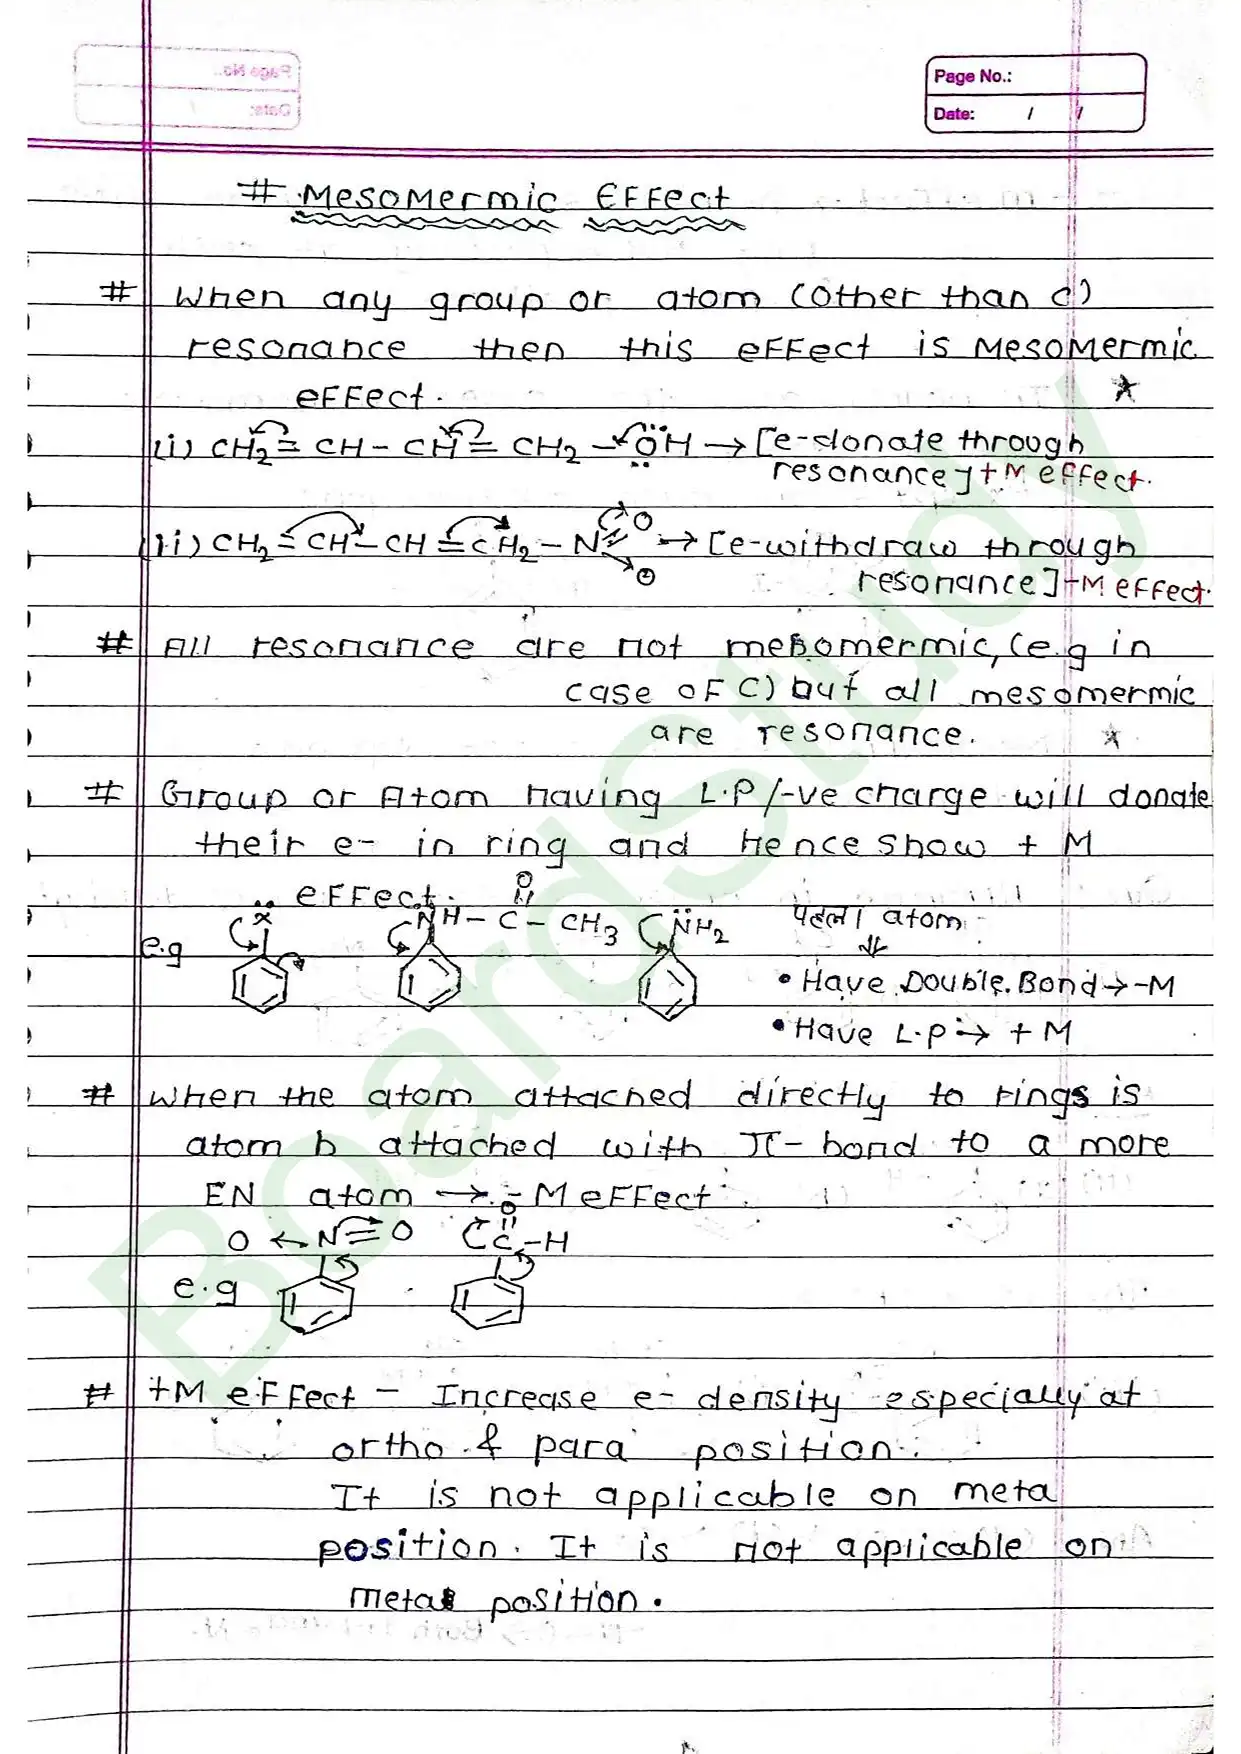 Page No.:
Date: / /
# Mesomermic Effect
# When any group or atom (other than c)
resonance then this effect is Mesomermic
effect.
(i) CH2 = CH - CH = CH2 - OH → [e-donate through
resonance] +M effect.
(ii) CH2 = CH - CH = CH2 - N O → [e-withdraw through
O
resonance] -M effect.
# All resonance are not mesomermic, (e.g in
case of C) but all mesomermic
are resonance.
# Group or Atom having L.P/-ve charge will donate
their e- in ring and Hence show + M
effect.
e.g
X
NH - C - CH3
O
NH2
पहला atom
⇓
• Have Double Bond → -M
• Have L.P → + M
# When the atom attached directly to rings is
atom b attached with π-bond to a more
EN atom → -M effect
e.g
O ← N = O
O
C - H
# +M effect - Increase e- density especially at
ortho & para position.
It is not applicable on meta
position. It is not applicable on
meta position.
BoardStudy